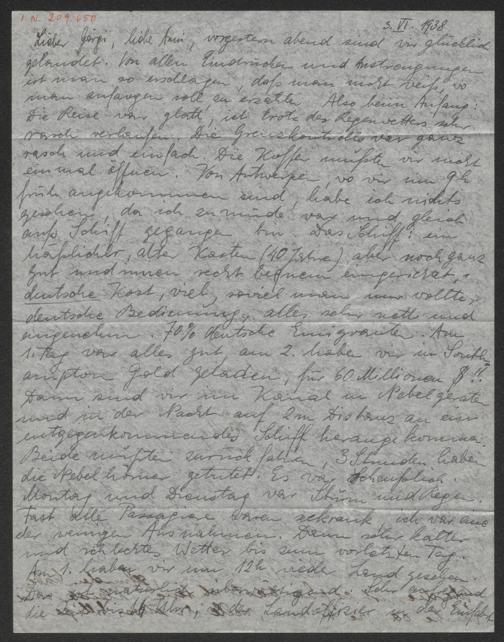 I.N. 209.650
3. VI. 1938
Liebe liebe vorgestern abend sind wir glücklich
gelandet. Von allen Eindrücken und Anstrengungen
ist man so erschlagen, daß man nicht weiß, wo
man anfangen soll zu erzählen. Also beim Anfang:
Die Reise war glatt, ist trotz des Regenwetters sehr
rasch verlaufen. Die Grenzkontrolle war ganz
rasch und einfach. Die Koffer mußten wir nicht
einmal öffnen. Von Antwerpen, wo wir um 9h
früh angekommen sind, habe ich nichts
gesehen, da ich zu müde war und gleich
aufs Schiff gegangen bin. Das Schiff: ein
häßlicher, alter Kasten (40 Jahre) aber noch ganz
gut und innen recht bequem eingerichtet,
deutsche Kost, viel, soviel man nur wollte,
deutsche Bedienung, alles sehr nett und
angenehm. 70% deutsche Emigranten. Am
1. Tag war alles gut, am 2. haben wir in South-
ampton Gold geladen, für 60 Millionen $!!
Dann sind wir im Kanal in Nebel geraten
und in der Nacht auf 2m Distanz an ein
entgegenkommendes Schiff herangekommen.
Beide mußten zurück fahren, 3 Stunden haben
die Nebelhörner getutet. Es war scheußlich.
Montag und Dienstag war Sturm und Regen.
Fast alle Passagiere waren seekrank, ich war eine
der wenigen Ausnahmen. Dann sehr kalter
und schlechtes Wetter bis zum vorletzten Tag.
Am 1. haben wir um 12h wieder Land gesehen.
Das natürlich überwältigend. Sehr
die der in der Einfahrt